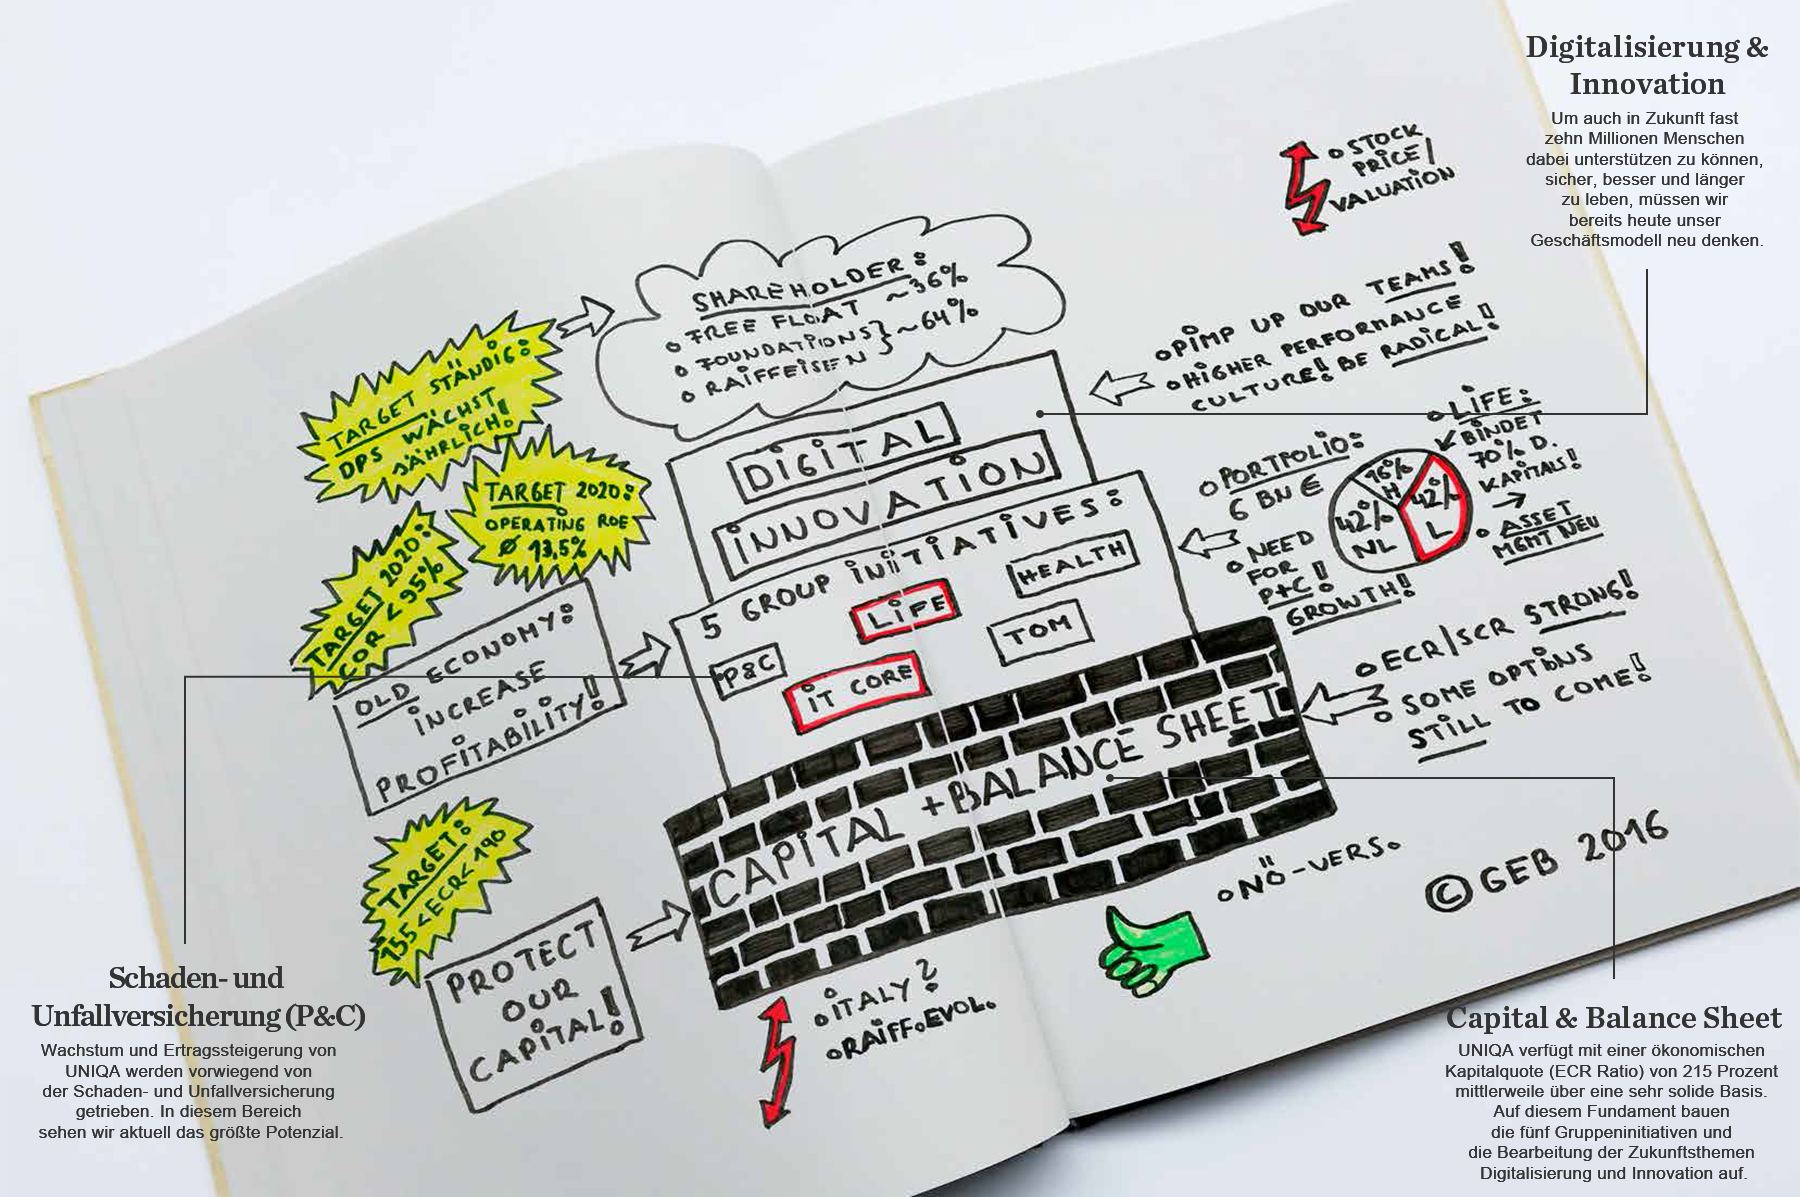 Digitalisierung &
Innovation
Um auch in Zukunft fast
zehn Millionen Menschen
dabei unterstützen zu können,
sicher, besser und länger
zu leben, müssen wir
bereits heute unser
Geschäftsmodell neu denken.
STOCK
PRICE/
VALUATION
SHAREHOLDER:
FREE FLOAT ~36%
FOUNDATIONS } ~64%
RAIFFEISEN
TARGET STÄNDIG:
DPS WÄCHST
JÄHRLICH!
TARGET 2020:
OPERATING ROE
Ø 13,5%
TARGET 2020:
COR < 95%
PIMP UP OUR TEAMS!
HIGHER PERFORMANCE
CULTURE! BE RADICAL!
DIGITAL
INNOVATION
PORTFOLIO:
6 BN €
NEED
FOR
P+C!
GROWTH!
16%
H
42%
NL
42%
L
LIFE:
BINDET
70% D.
KAPITALS!
→
ASSET
MGMT NEU
5 GROUP INITIATIVES:
LIFE
HEALTH
P&C
IT CORE
TOM
OLD ECONOMY:
INCREASE
PROFITABILITY!
ECR/SCR STRONG!
SOME OPTIONS
STILL TO COME!
CAPITAL + BALANCE SHEET
TARGET:
155 < ECR < 190
PROTECT
OUR
CAPITAL!
ITALY?
RAIFF.EVOL.
NÖ-VERS.
© GEB 2016
Schaden- und
Unfallversicherung (P&C)
Wachstum und Ertragssteigerung von
UNIQA werden vorwiegend von
der Schaden- und Unfallversicherung
getrieben. In diesem Bereich
sehen wir aktuell das größte Potenzial.
Capital & Balance Sheet
UNIQA verfügt mit einer ökonomischen
Kapitalquote (ECR Ratio) von 215 Prozent
mittlerweile über eine sehr solide Basis.
Auf diesem Fundament bauen
die fünf Gruppeninitiativen und
die Bearbeitung der Zukunftsthemen
Digitalisierung und Innovation auf.